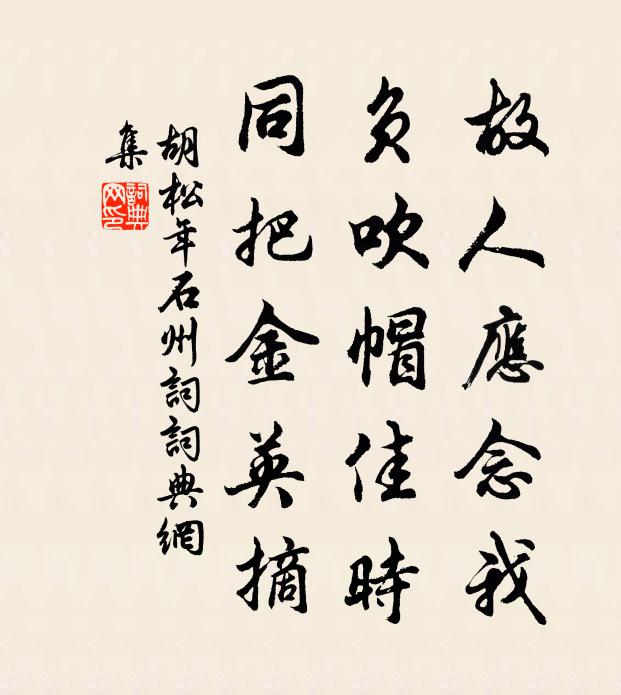 故人應念我
負吹帽佳時
同把金英摘
胡松年石州詞詞典網
集
詞典
网印